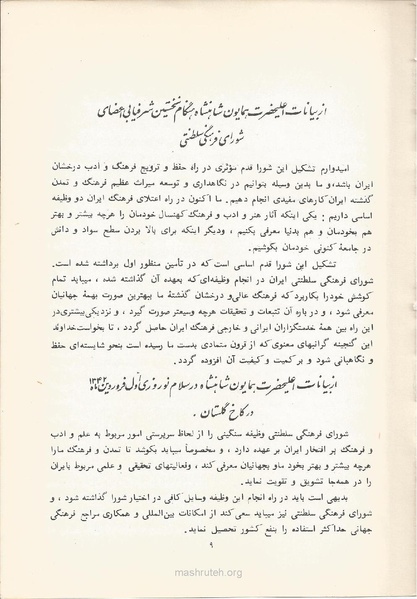 از بیانات اعلیحضرت همایون شاهنشاه هنگام نخستین شرفیابی اعضای
شورای فرهنگی سلطنتی
امیدوارم تشکیل این شورا قدم مؤثری در راه حفظ و ترویج فرهنگ و ادب درخشان
ایران باشد، و ما بدین وسیله بتوانیم در نگاهداری و توسعه میراث عظیم فرهنگ و تمدن
گذشته ایران کارهای مفیدی انجام دهیم. ما اکنون در راه اعتلای فرهنگ ایران دو وظیفه
اساسی داریم: یکی اینکه آثار هنر و ادب و فرهنگ کهنسال خودمان را هرچه بیشتر و بهتر
هم بخودمان و هم بدنیا معرفی بکنیم ، ودیگر اینکه برای بالا بردن سطح سواد و دانش
در جامعهٔ کنونی خودمان بکوشیم.
تشکیل این شورا قدم اساسی است که در تأمین منظور اول برداشته شده است.
شورای فرهنگی سلطنتی ایران در انجام وظیفه‌ای که بعهده آن گذاشته شده ، میباید تمام
کوشش خودرا بکاربرد که فرهنگ عالی و درخشان گذشتهٔ ما ببهترین صورت بهمهٔ جهانیان
معرفی شود ، و در باره آن تتبعات و تحقیقات هرچه وسیعتر صورت گیرد ، و نزدیکی بیشتری در
این راه بین همهٔ خدمتگزاران ایرانی و خارجی فرهنگ ایران حاصل گردد ، تا بخواست خداوند
این گنجینه گرانبهای معنوی که از قرون متمادی بدست ما رسیده است بنحو شایسته‌ای حفظ
و نگاهبانی شود و بر کمیت و کیفیت آن افزوده گردد.
از بیانات اعلیحضرت همایون شاهنشاه در سلام نوروزی اول فروردین ۱۳۴۲
در کاخ گلستان .
شورای فرهنگی سلطنتی وظیفه سنگینی را از لحاظ سرپرستی امور مربوط به علم و ادب
و فرهنگ پر افتخار ایران بر عهده دارد ، و مخصوصاً میباید بکوشد تا تمدن و فرهنگ مارا
هرچه بیشتر و بهتر بخود ما و بجهانیان معرفی کند ، وفعالیتهای تحقیقی و علمی مربوط بایران
را در همه‌جا تشویق و تقویت نماید.
بدیهی است باید در راه انجام این وظیفه وسایل کافی در اختیار شورا گذاشته شود ، و
شورای فرهنگی سلطنتی نیز میباید سعی کند از امکانات بین‌المللی و همکاری مراجع فرهنگی
جهانی حداکثر استفاده را بنفع کشور تحصیل نماید.
۹
mashruteh.org